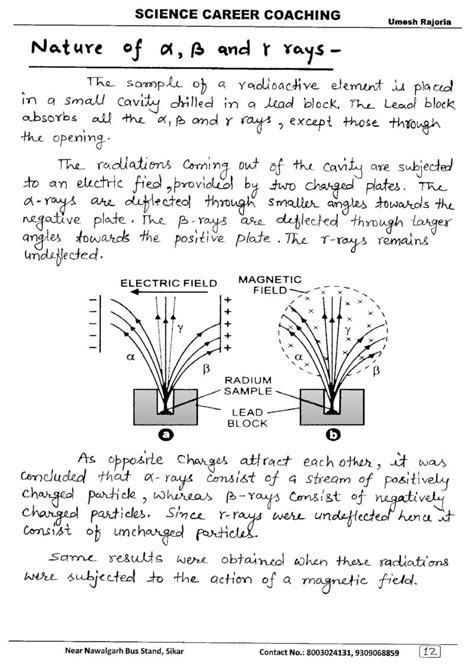 SCIENCE CAREER COACHING
Umesh Rajoria
Nature of α, β and γ rays -
The sample of a radioactive element is placed
in a small cavity drilled in a lead block. The Lead block
absorbs all the α, β and γ rays, except those through
the opening.
The radiations coming out of the cavity are subjected
to an electric fied, provided by two charged plates. The
α-rays are deflected through smaller angles towards the
negative plate. The β-rays are deflected through larger
angles towards the positive plate. The γ-rays remains
undeflected.
ELECTRIC FIELD
MAGNETIC
FIELD
α
γ
β
α
γ
β
RADIUM
SAMPLE
LEAD
BLOCK
a
b
As opposite charges attract each other, it was
concluded that α-rays consist of a stream of positively
charged particle, whereas β-rays consist of negatively
charged particles. Since γ-rays were undeflected hence it
consist of uncharged particles.
Same results were obtained when these radiations
were subjected to the action of a magnetic field.
Near Nawalgarh Bus Stand, Sikar
Contact No.: 8003024131, 9309068859
12